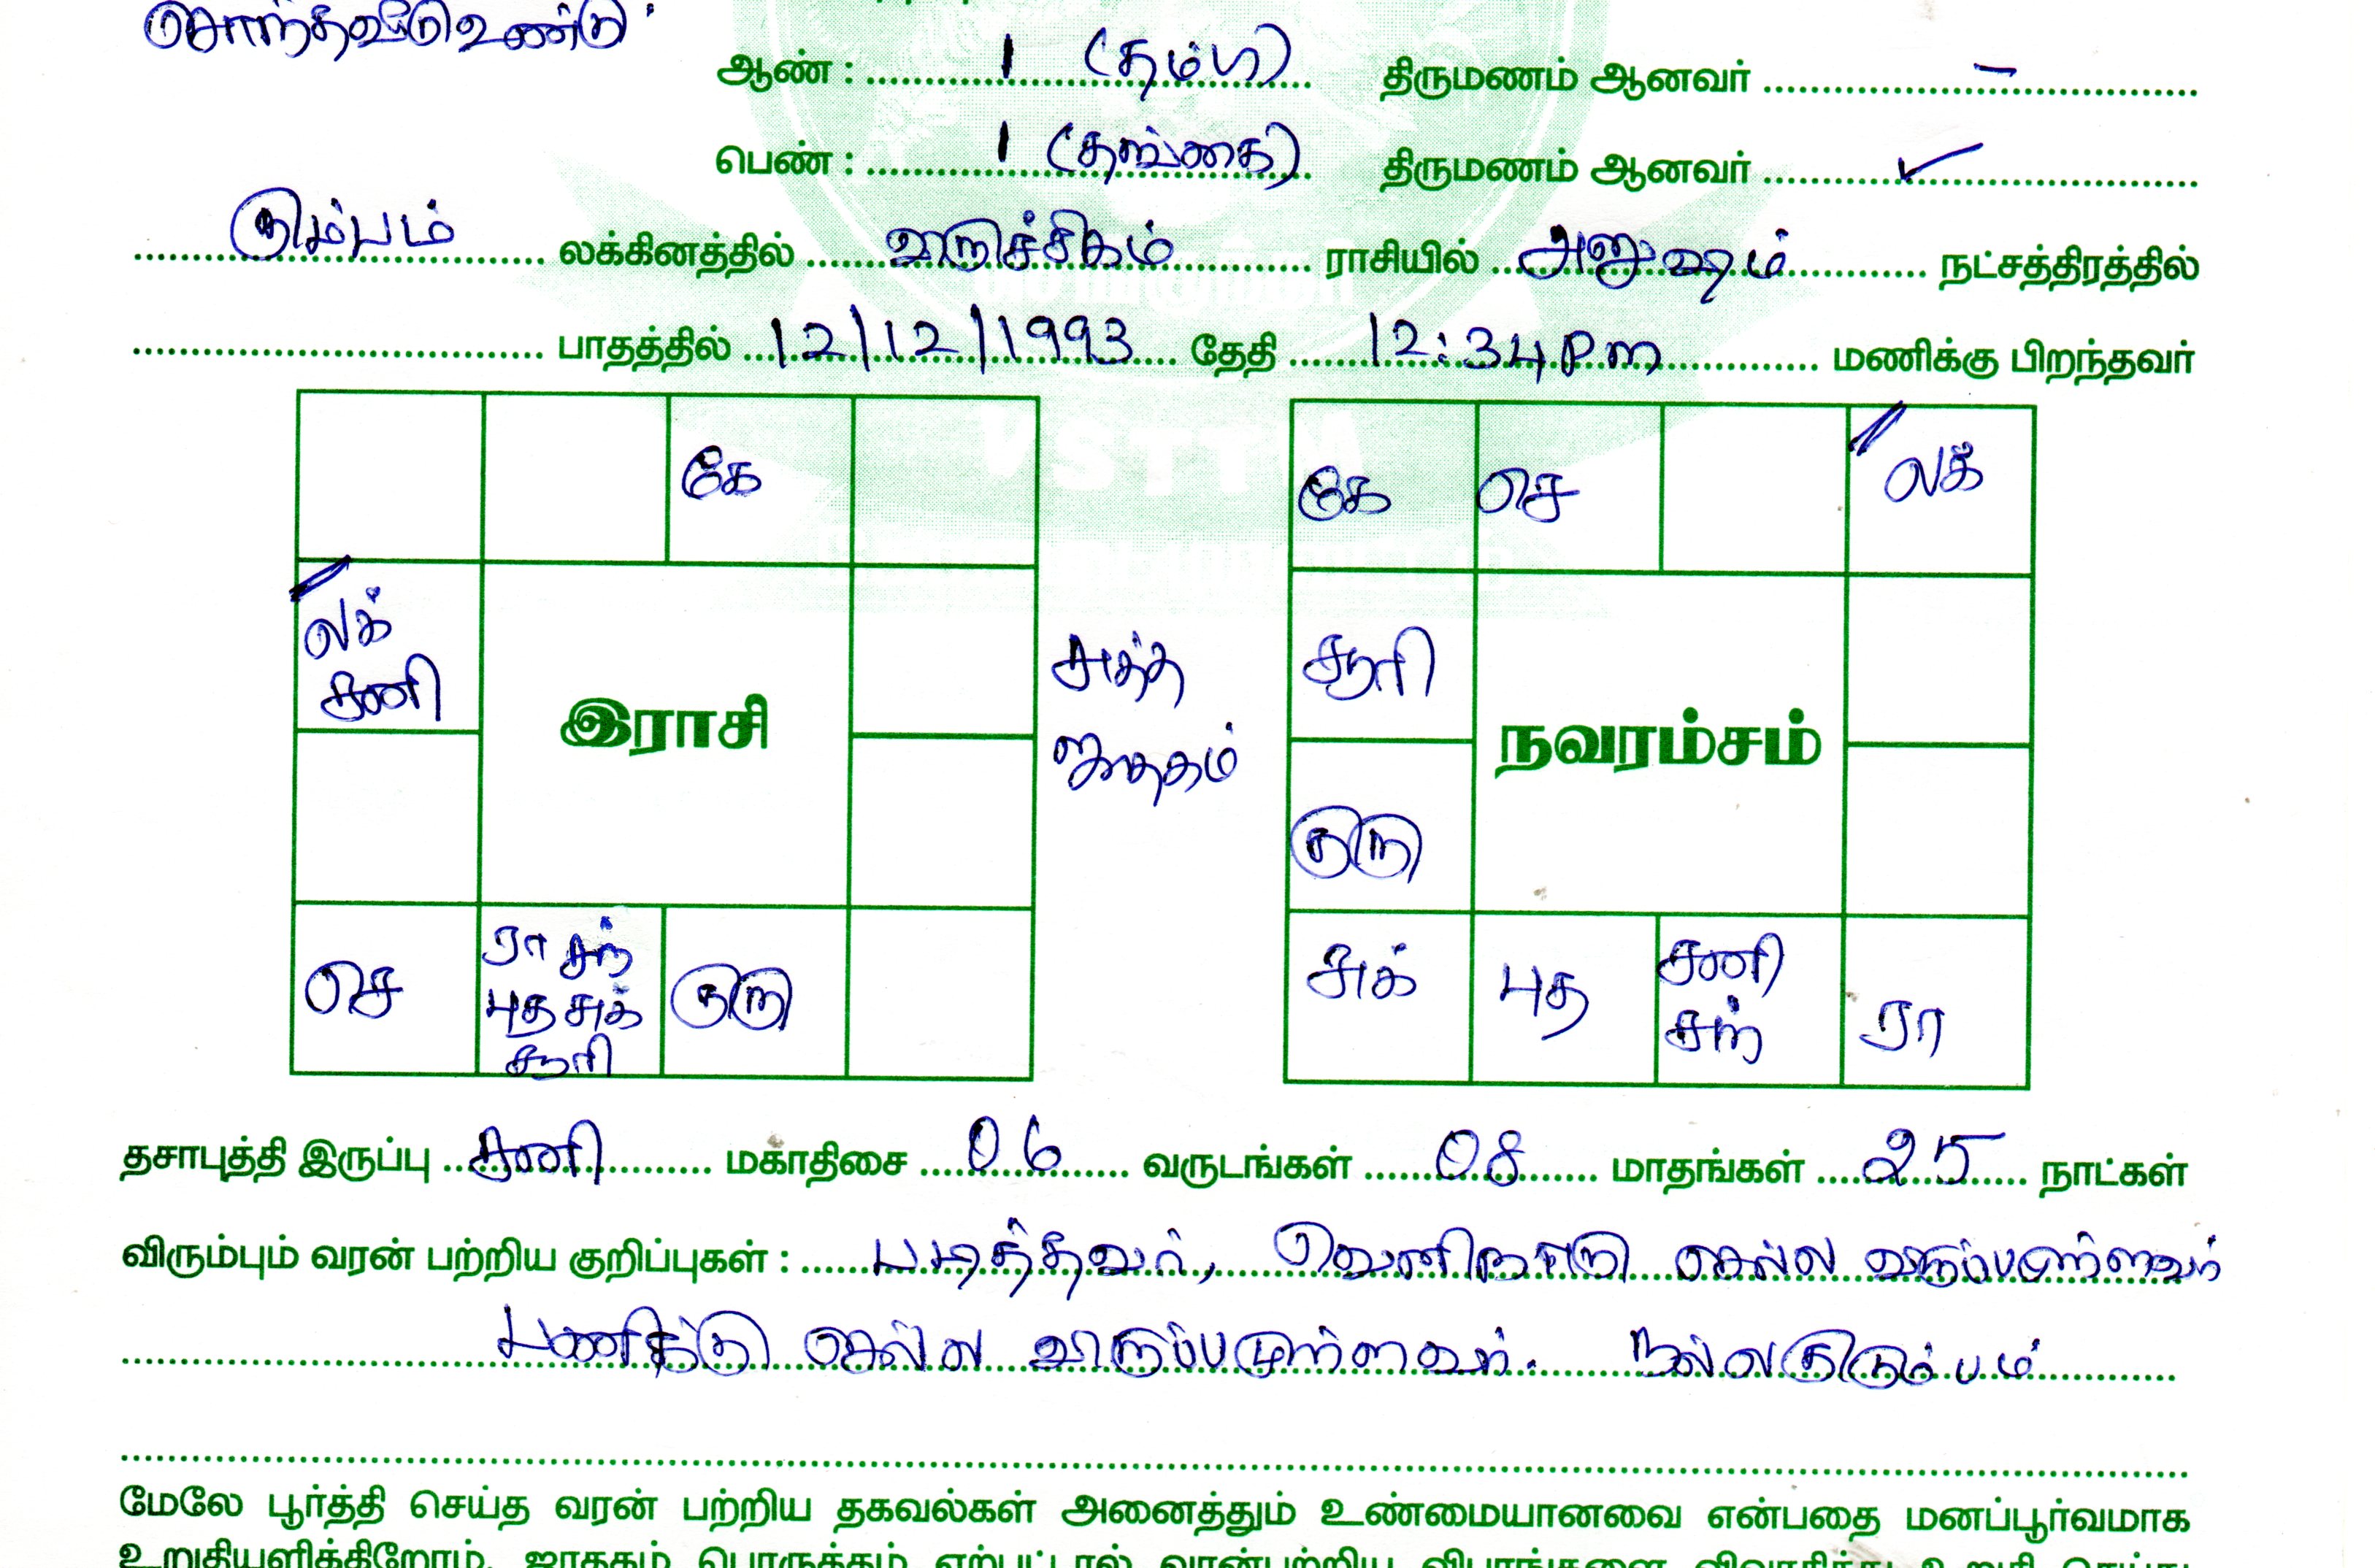 சொந்தவீடு உண்டு.
ஆண் : 1 (தம்பி) திருமணம் ஆனவர் -
பெண் : 1 (தங்கை) திருமணம் ஆனவர் ✓
கும்பம் லக்கினத்தில் விருச்சிகம் ராசியில் அனுஷம் நட்சத்திரத்தில்
பாதத்தில் 12/12/1993 தேதி 12:34pm மணிக்கு பிறந்தவர்
கே
கே செ லக்
லக்
சனி
சுத்த
ஜாதகம்
சூரி
இராசி
நவரம்சம்
குரு
செ
ரா சந்
புத சுக்
சூரி
குரு
சுக் புத
சனி
சந்
ரா
தசாபுத்தி இருப்பு சனி மகாதிசை 06 வருடங்கள் 08 மாதங்கள் 25 நாட்கள்
விரும்பும் வரன் பற்றிய குறிப்புகள் : படித்தவர், வெளிநாடு செல்ல விருப்பமுள்ளவர்
பணிக்கு செல்ல விருப்பமுள்ளவர். நல்லகுடும்பம்
மேலே பூர்த்தி செய்த வரன் பற்றிய தகவல்கள் அனைத்தும் உண்மையானவை என்பதை மனப்பூர்வமாக
உறுதியளிக்கிறோம். ஜாதகம் பொருத்தம் ஏற்பட்டால் வரன்பற்றிய விபரங்களை விவாதித்து உறுதி செய்து